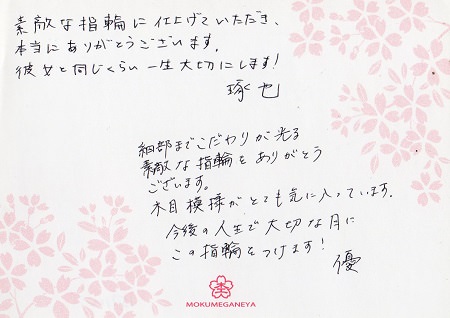 素敵な指輪に仕上げていただき、
本当にありがとうございます。
彼女と同じくらい一生大切にします！
琢也
細部までこだわりが光る
素敵な指輪をありがとう
ございます。
木目模様がとても気に入っています。
今後の人生で大切な日に
この指輪をつけます！
優
MOKUMEGANEYA